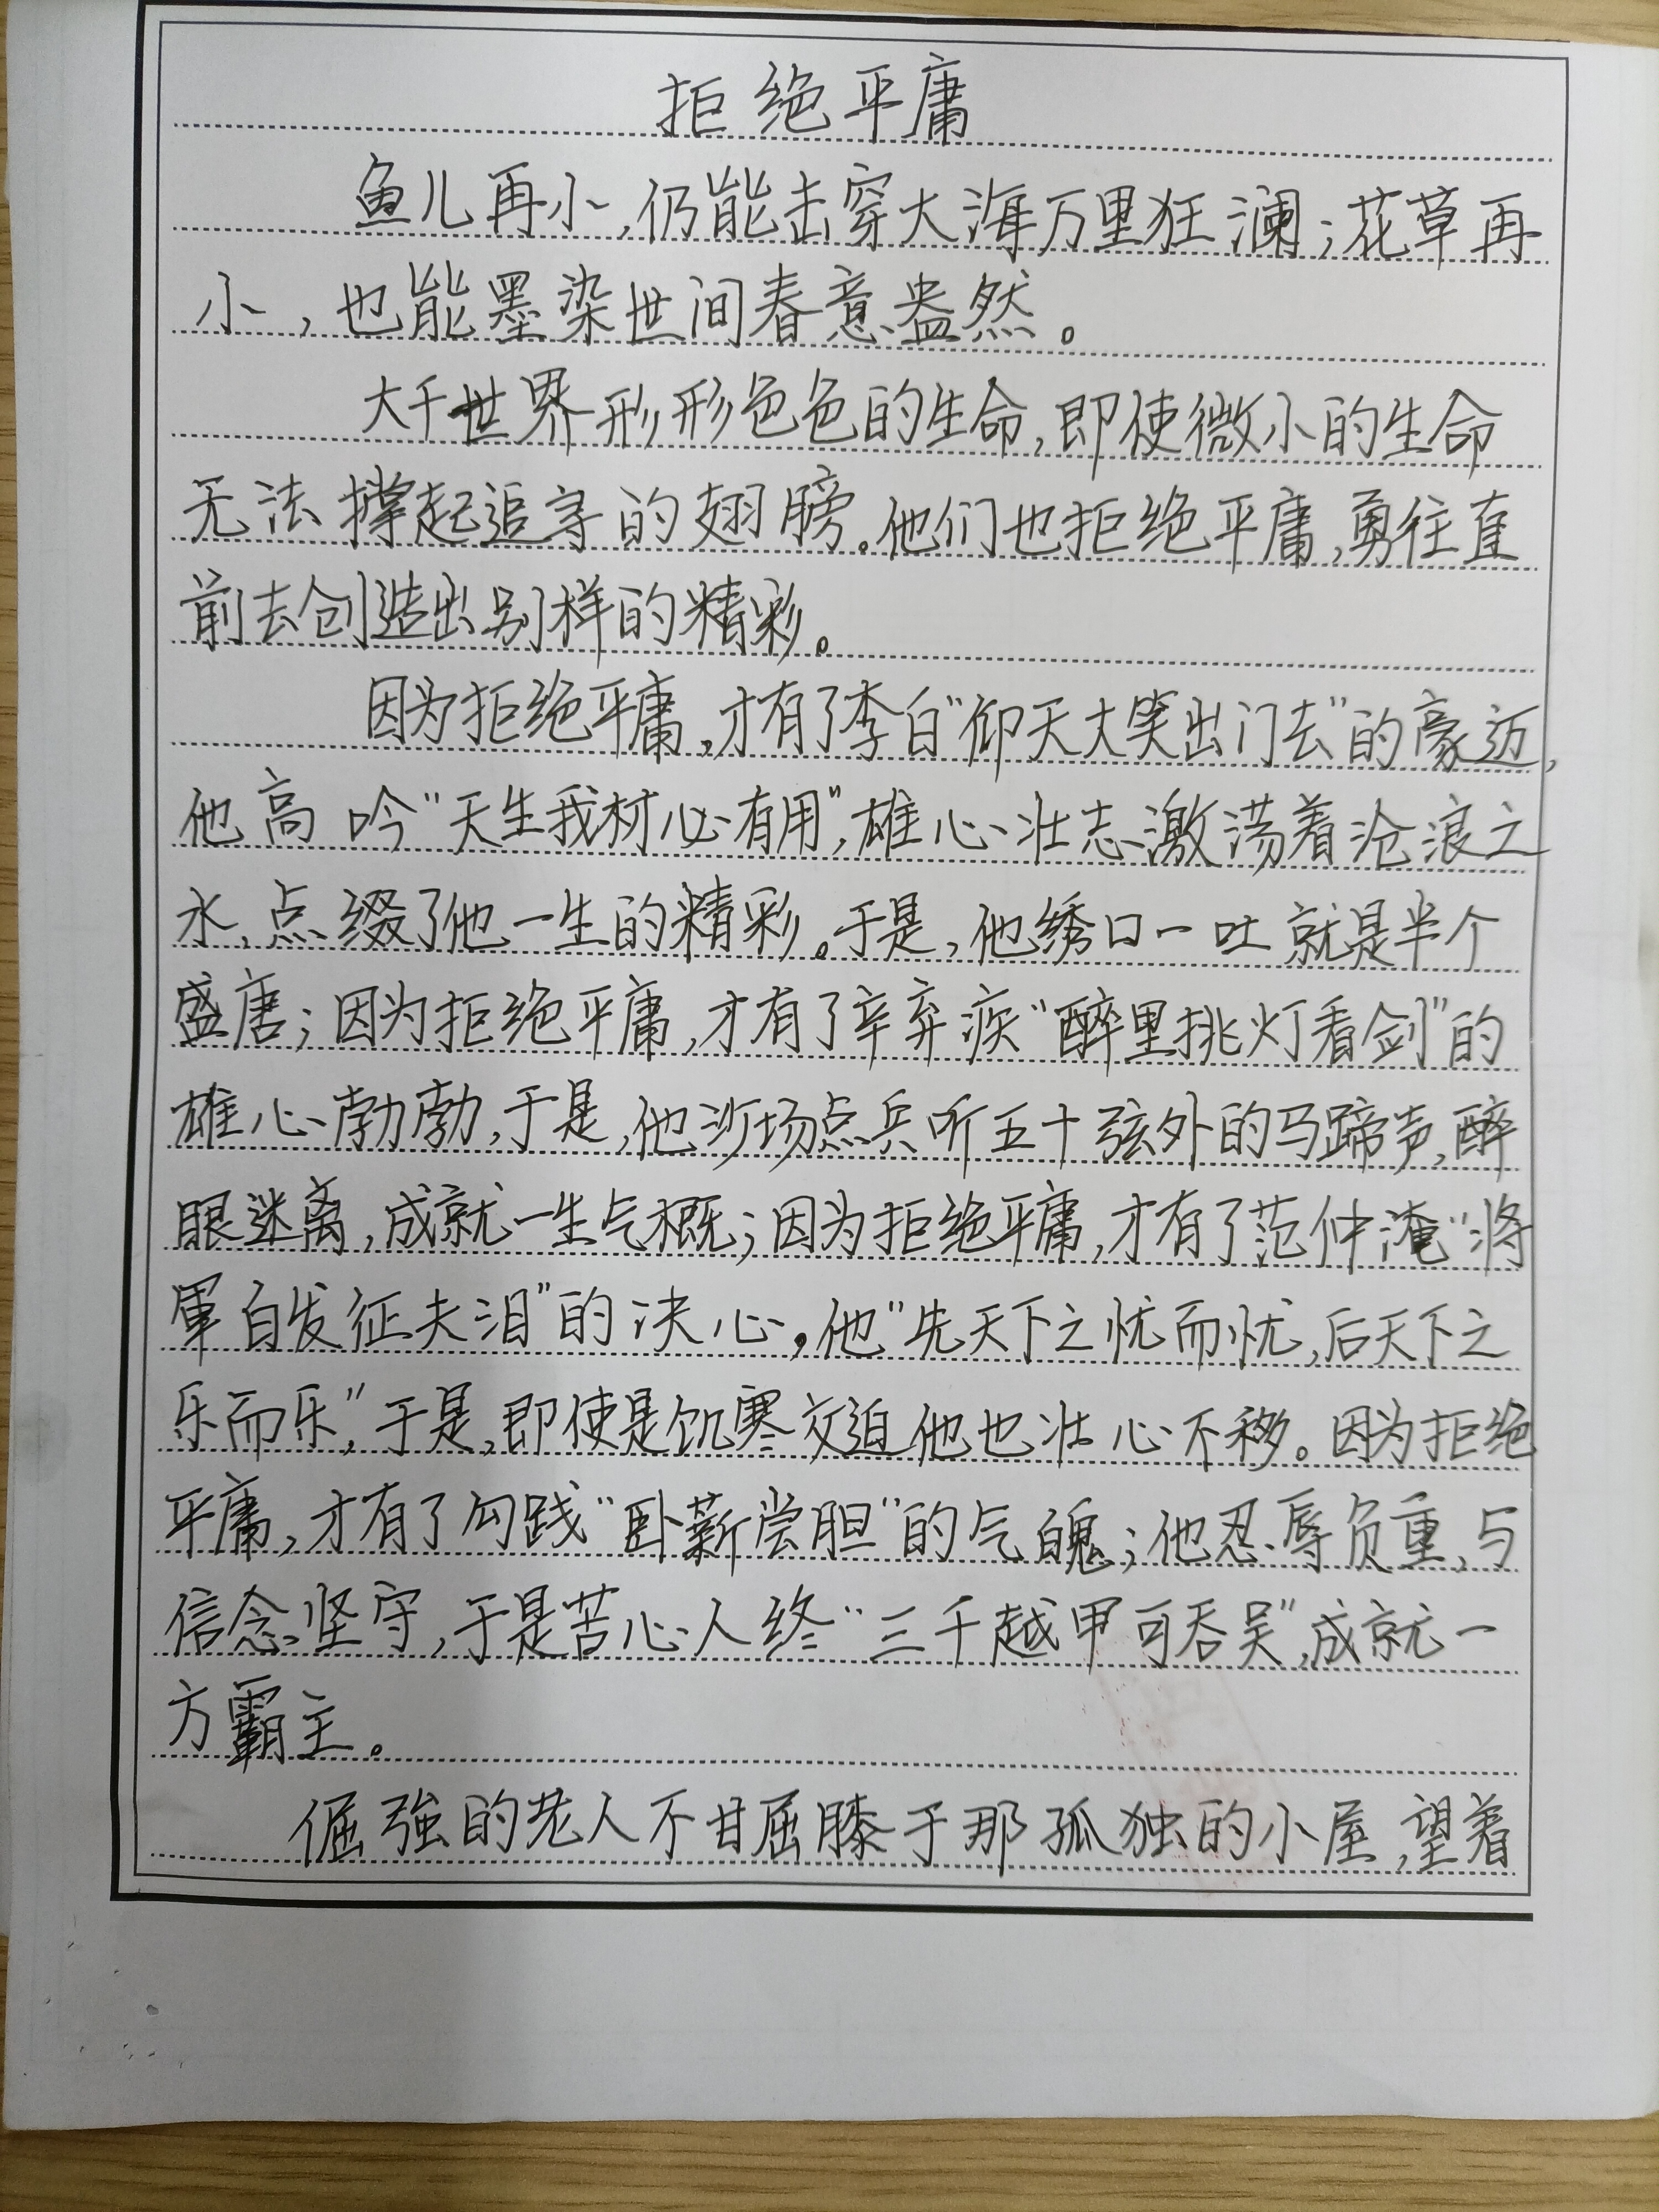 拒绝平庸
鱼儿再小,仍能击穿大海万里狂澜;花草再
小,也能墨染世间春意盎然。
大千世界形形色色的生命,即使微小的生命
无法撑起追寻的翅膀。他们也拒绝平庸,勇往直
前去创造出别样的精彩。
因为拒绝平庸,才有了李白“仰天大笑出门去”的豪迈,
他高吟“天生我材心有用”,雄心壮志激荡着沧浪之
水,点缀了他一生的精彩。于是,他绣口一吐就是半个
盛唐;因为拒绝平庸,才有了辛弃疾“醉里挑灯看剑”的
雄心勃勃,于是,他沙场点兵听五十弦外的马蹄声,醉
眼迷离,成就一生气概;因为拒绝平庸,才有了范仲淹“将
军白发征夫泪”的决心,他“先天下之忧而忧,后天下之
乐而乐”,于是,即使是饥寒交迫他也壮心不移。因为拒绝
平庸,才有了勾践“卧薪尝胆”的气魄;他忍辱负重,与
信念坚守,于是苦心人终“三千越甲可吞吴”,成就一
方霸主。
倔強的老人不甘屈膝于那孤独的小屋,望着